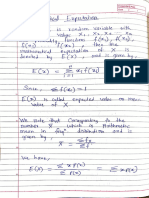 Expectation
is random variable with
values x₁, x₂, ... xₙ
probability function f(x₁), f(x₂),
f(xₙ), then the
mathematical expectation of X is
denoted by E(x) and is given by
E(x) = Σ xᵢ f(xᵢ)
Since, Σ f(xᵢ) = 1
E(x) is called expected value or mean
value of X.
We note that corresponding to the
number X, which is
mean in freqⁿ distribution and is
given by
X = Σfx / Σf
We have,
E(x) = Σ x p(x) / Σ p(x) = Σ x p(x)